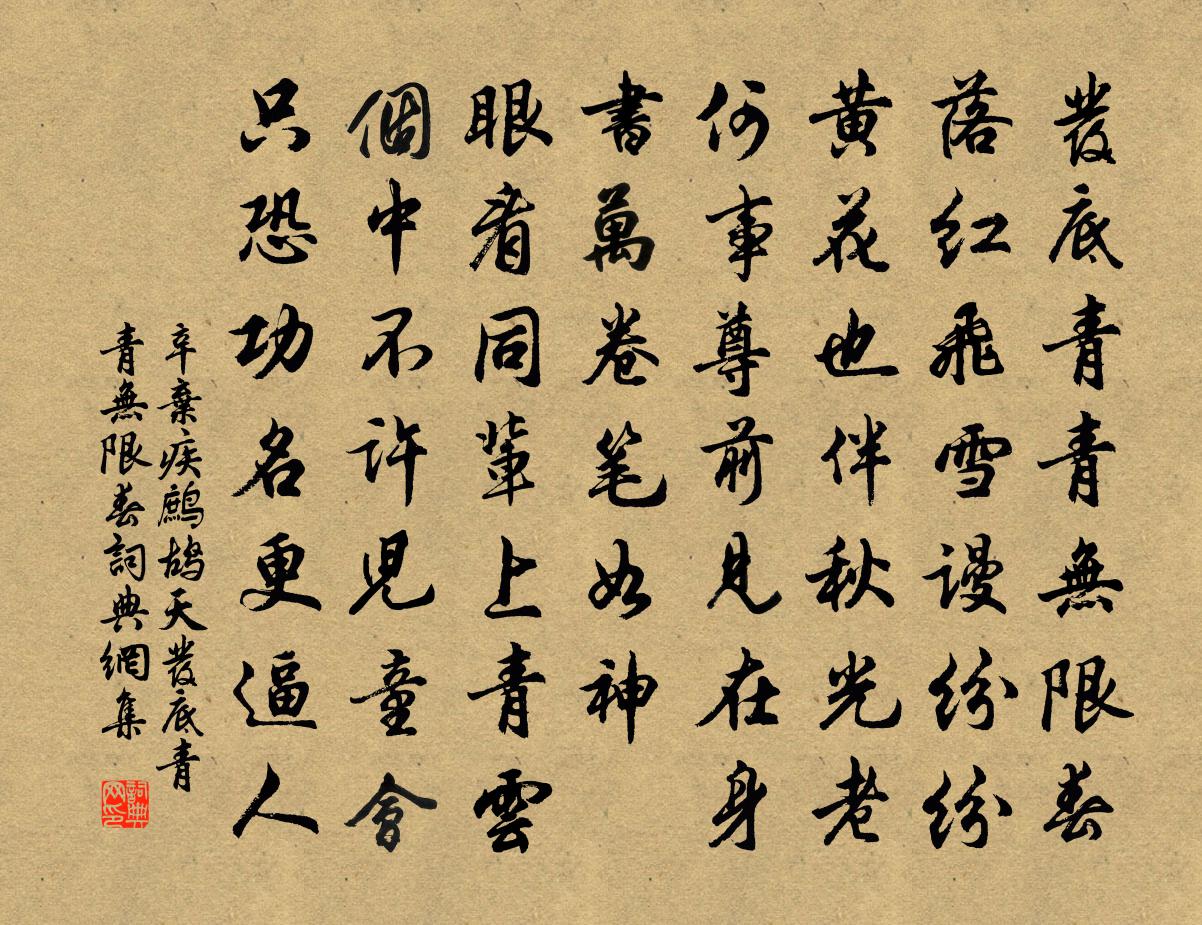 發底青青無限春
落紅飛雪謾紛紛
黃花也伴秋光老
何事尊前見在身
書萬卷筆如神
眼看同輩上青雲
個中不許兒童會
只恐功名更逼人
辛棄疾鷓鴣天發底青
青無限春詞典網集
詞典
网印